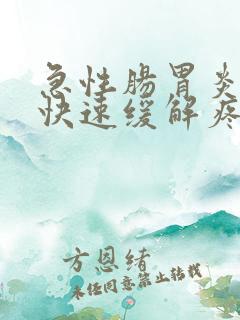 急性腸胃炎
快速缓解疼
方恩绪
未经同意禁止转载